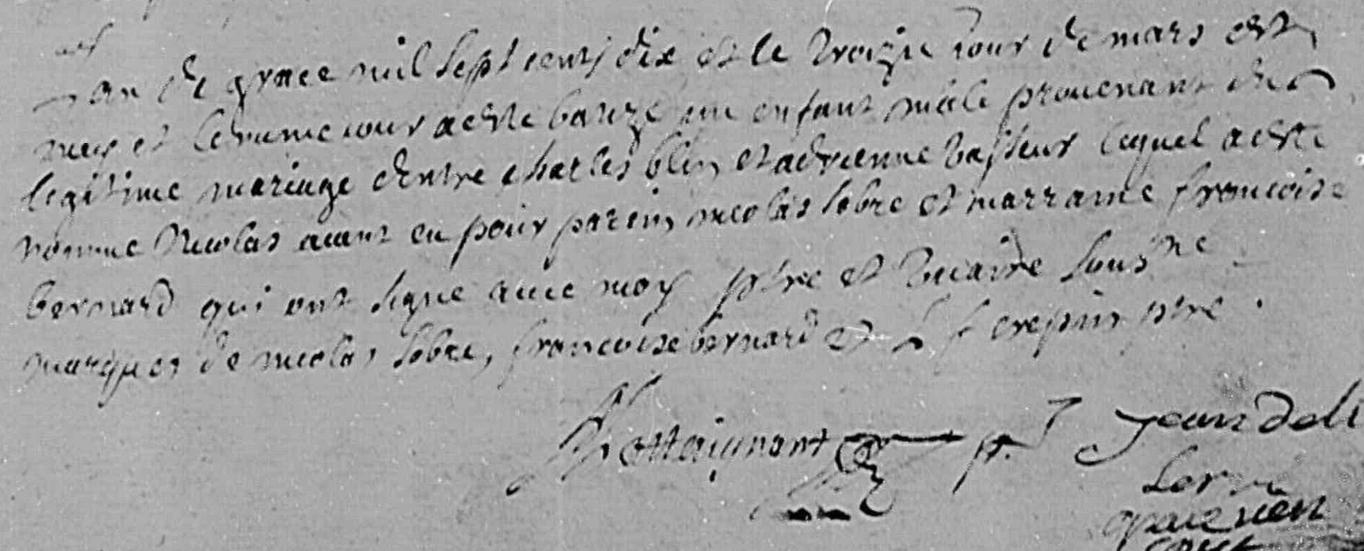 Lan de grace mil sept cents dix et le troizie iour de mars est
ney et le meme iour a este batize un enfant male prouenant du
legitime mariage dentre charles blin et adrienne vasseur lequel a este
nomme Nicolas aiant eu pour parein nicolas lobre et marraine francoise
bernard qui ont signe auec moy ptre et vicaire sousne
marques de nicolas lobre, francoise bernard et f crepin ptre
Jean deli